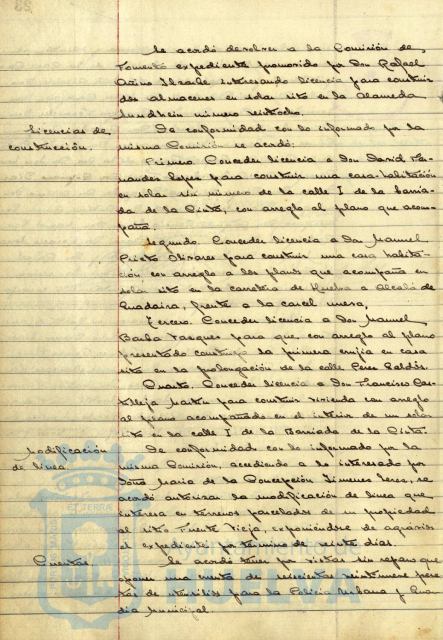 Se acordó devolver a la Comisión de
Fomento expediente promovido por Don Rafael
interesando licencia para construir
dos almacenes en solar sito en la Alameda
Sundheim número veintiocho.
Licencias de construcción.
De conformidad con lo informado por la
misma Comisión se acordó:
Primero. Conceder licencia a Don David Fer-
nandez Lopez para construir una casa-habitación
en solar sin número de la calle I de la Barria-
da de la Cinta, con arreglo al plano que acom-
paña.
Segundo. Conceder licencia a Don Manuel
Prieto Olivares para construir una casa habita-
ción con arreglo a los planos que acompaña en
solar sito en la carretera de Huelva a Alcalá de
Guadaira, frente a la carcel nueva.
Tercero. Conceder licencia a Don Manuel
Barba Vazquez para que con arreglo al plano
presentado construya la primera crujia en casa
sita en la prolongación de la calle Perez Galdós.
Cuarto. Conceder licencia a Don Francisco Cas-
tilleja Martin para construir vivienda con arreglo
al plano acompañado en el interior de un solar
sito en la calle I de la Barriada de la Cinta.
Modificación de línea.
De conformidad con lo informado por la
misma Comisión, accediendo a lo interesado por
Doña Maria de la Concepción Jimenez se
acordó autorizar la modificación de línea que
interesa en terrenos parcelados de su propiedad
al sitio Fuente Vieja, exponiéndose de agravios
el expediente por término de veinte días.
Cuentas.
Se acordó tener por vistas sin reparo que
oponer una cuenta de seiscientas veintinueve pese-
tas de utensilios para la Policia Urbana y Guar-
dia Municipal.
Ayuntamiento de
HUELVA